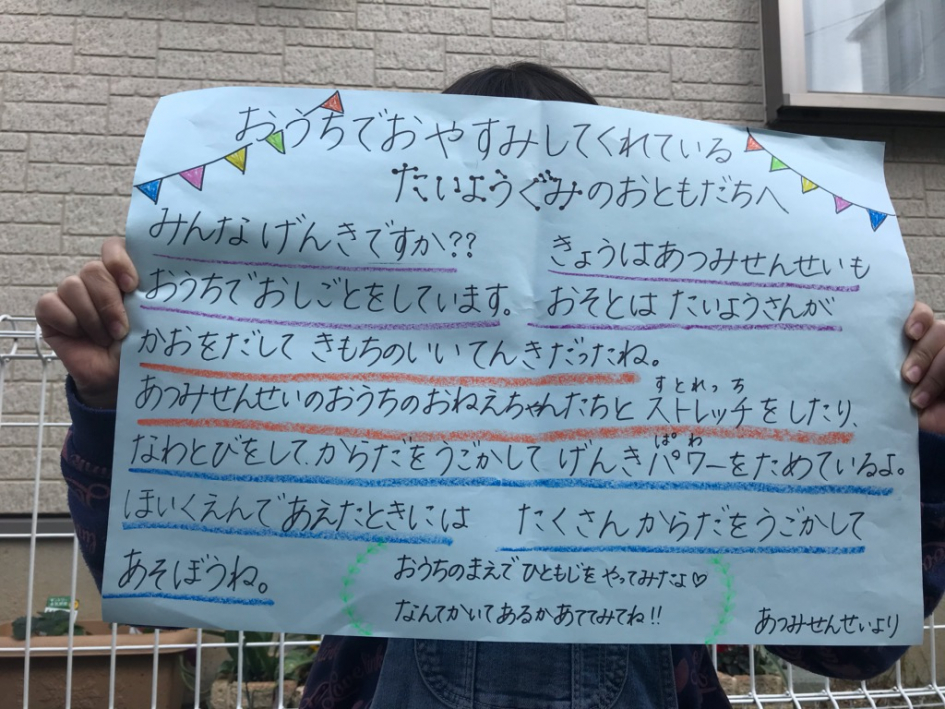 おうちでおやすみしてくれている
たいようぐみのおともだちへ
みんなげんきですか??　きょうはあつみせんせいも
おうちでおしごとをしています。　おそとは たいようさんが
かおをだして きもちのいいてんきだったね。
すとれっち
あつみせんせいのおうちのおねえちゃんたちと ストレッチをしたり、
ぱわ
なわとびをして、からだをうごかして げんきパワーをためているよ。
ほいくえんであえたときには　たくさんからだをうごかして
あそぼうね。
おうちのまえで ひともじを やってみたよ♡
なんてかいてあるかあててみてね!!
あつみせんせいより